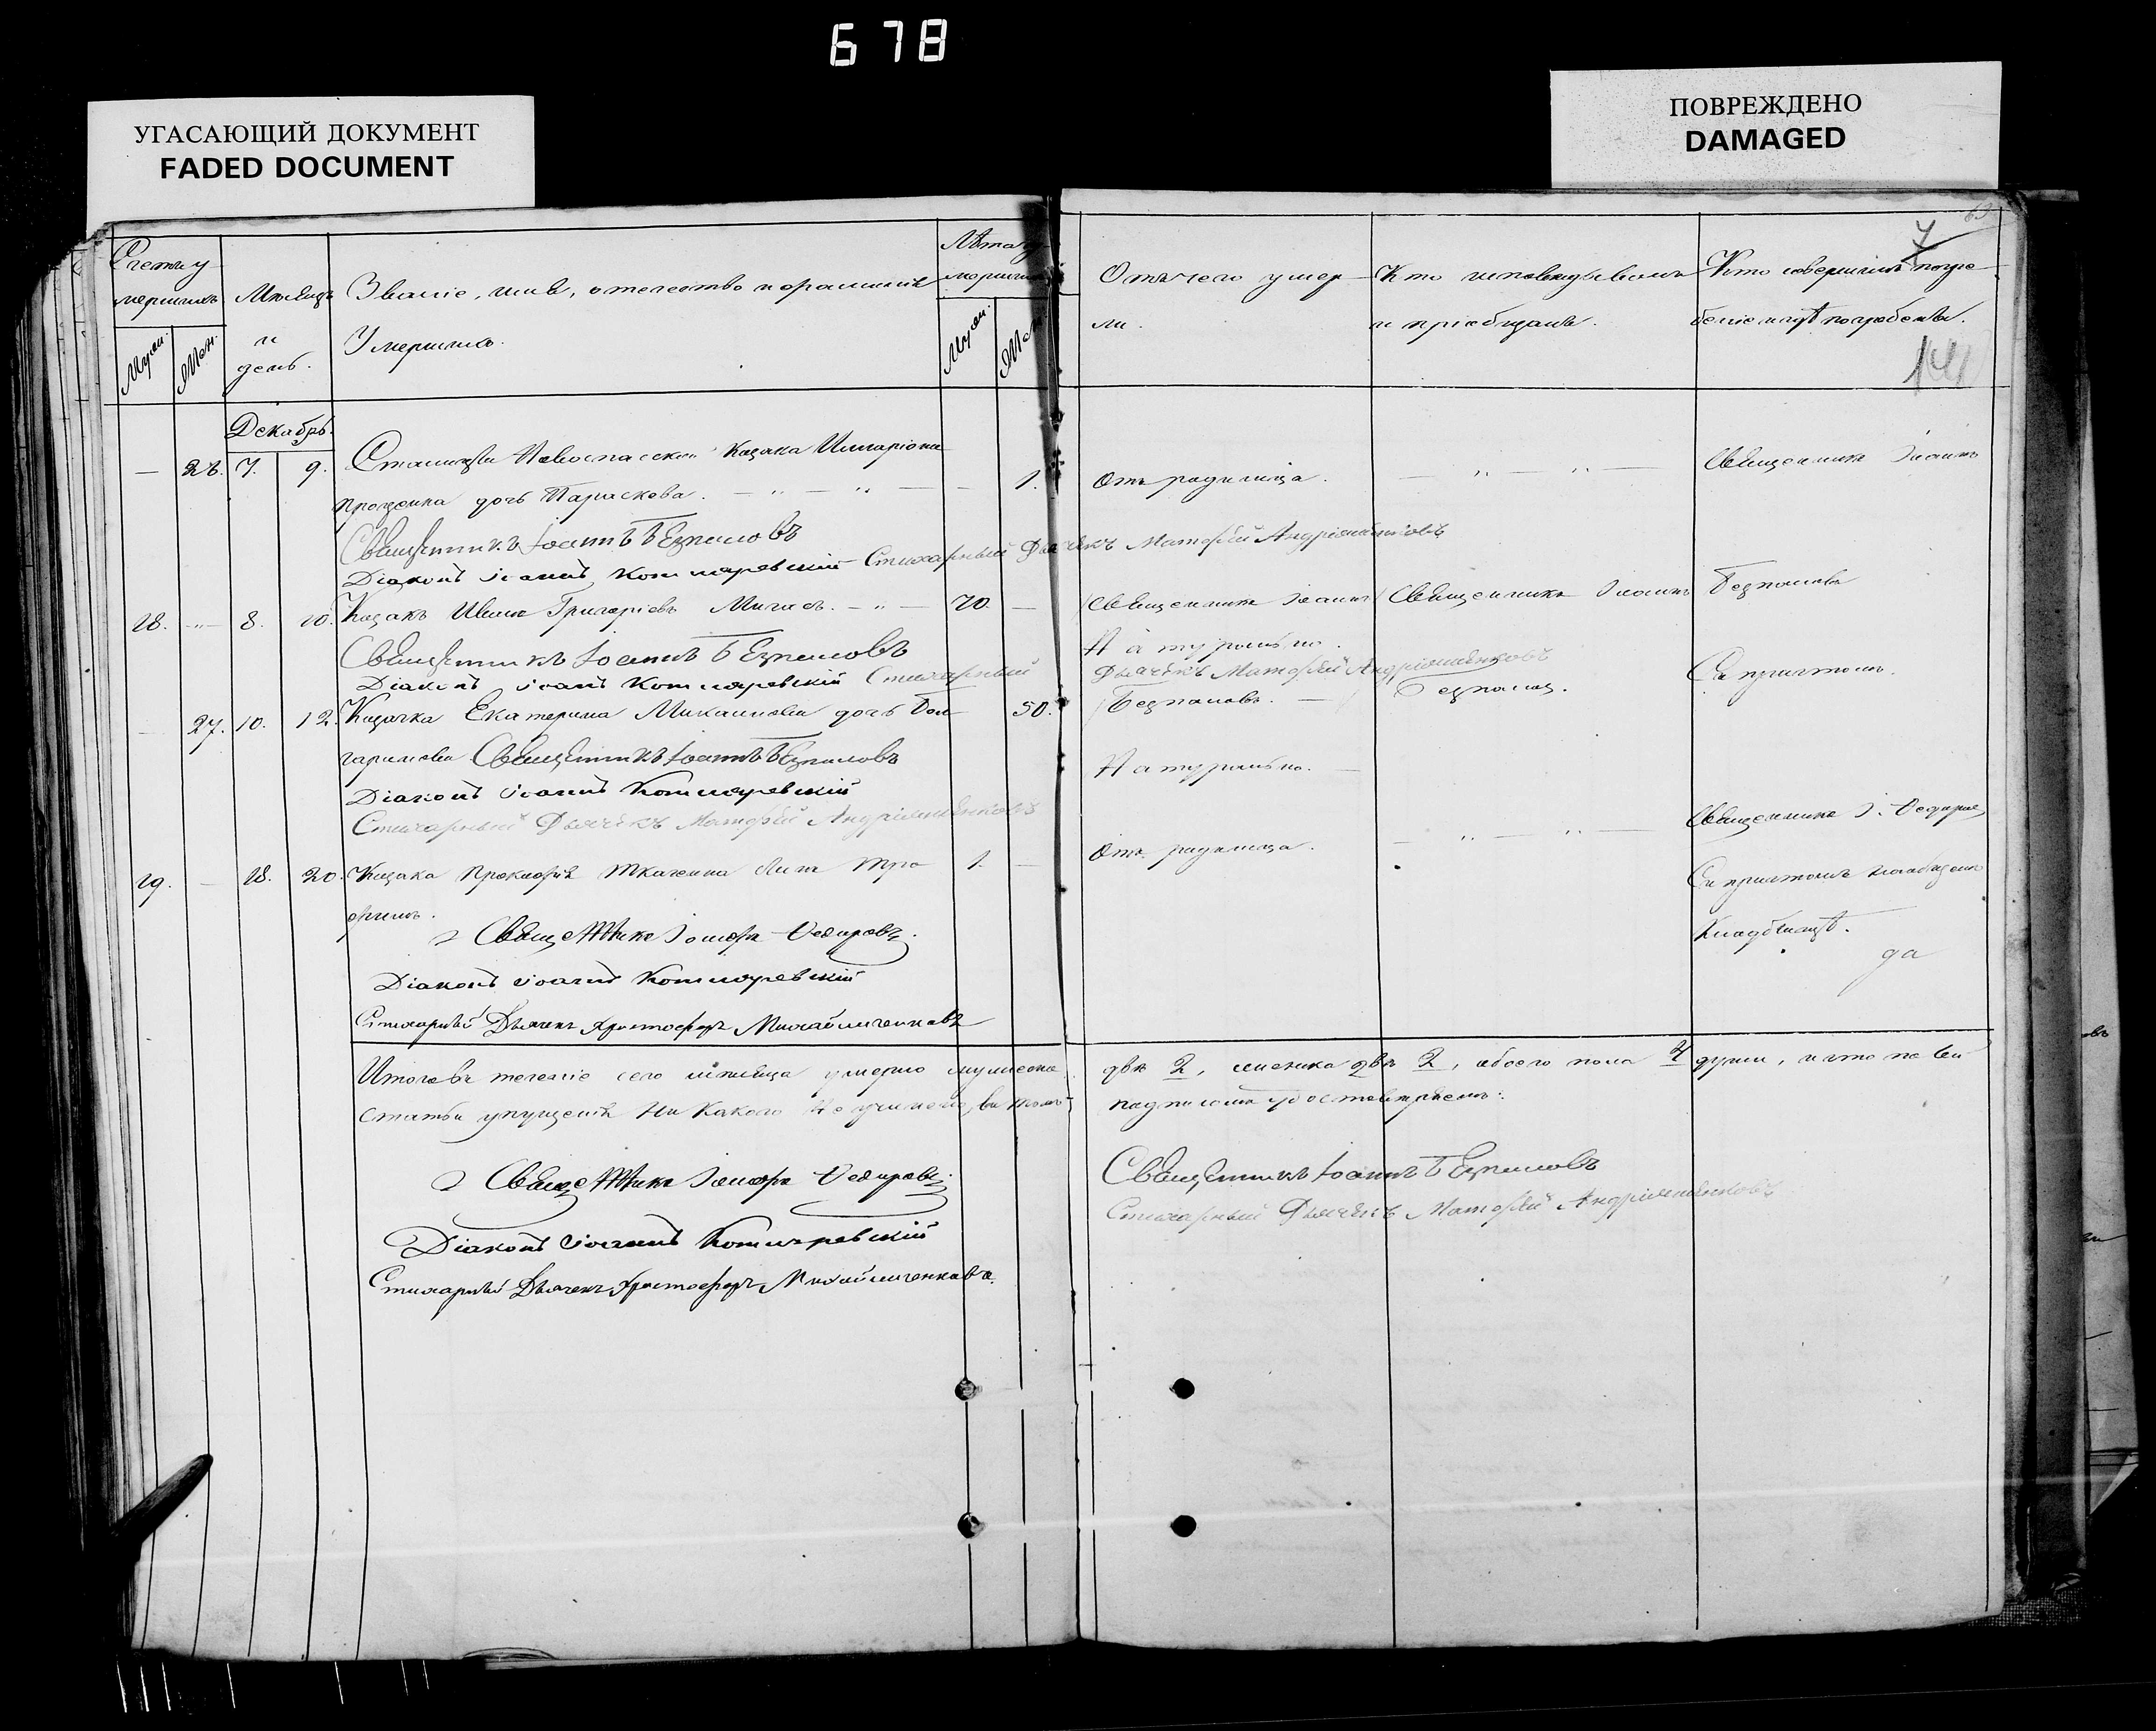 678
УГАСАЮЩИЙ ДОКУМЕНТ
FADED DOCUMENT
ПОВРЕЖДЕНО
DAMAGED
Счетъ у
мершихъ
Муж.
Жен.
Мѣсяцъ
и
день.
Званіе, имя, отечество и фамилія
Умершихъ.
Лѣта у
мерших
Муж.
Жен.
Отъ чего умер
ли.
Кто исповѣдывалъ
и пріобщалъ.
Кто совершилъ погре
беніе и гдѣ погребены.
7
141
Декабрь.
28. 7. 9. Станицы Новоспасской Казака Илларіона
дочь Параскева. 1.
Отъ родимца.
Священникъ Іоаннъ
Священникъ Іоаннъ Безпаловъ
Діаконъ Іоаннъ Котляревскій Стихарный Дьячекъ Матфей
18. 8. 10. Казакъ Иванъ Григорьевъ 70.
Священникъ Іоаннъ
Священникъ Іоаннъ
Безпаловъ
Натурально.
Священникъ Іоаннъ Безпаловъ
Діаконъ Іоаннъ Котляревскій Стихарный
Дьячекъ Матфей
Безпаловъ.
Съ причтомъ.
27. 10. 12. Казачка Екатерина Михайлова дочь 50.
Безпаловъ.
Священникъ Іоаннъ Безпаловъ
Натурально.
Діаконъ Іоаннъ Котляревскій
Стихарный Дьячекъ Матфей
19. 18. 20. Казака Прокофія Ткачева сынъ Тро
фимъ. 1.
Отъ родимца.
Священникъ І. Федоровъ
Съ причтомъ на общемъ
Кладбищѣ.
да
Священникъ Іосифъ Федоровъ.
Діаконъ Іоаннъ Котляревскій
Стихарный Дьячекъ Христофоръ Михайличенковъ
Итого въ теченіе сего мѣсяца умерло мужеска
два 2, женска два 2, обоего пола 4 души, и что по сей
статьи упущенія ни какого не учинено, въ томъ
подписомъ удостовѣряемъ:
Священникъ Іосифъ Федоровъ.
Діаконъ Іоаннъ Котляревскій
Стихарный Дьячекъ Христофоръ Михайличенковъ.
Священникъ Іоаннъ Безпаловъ
Стихарный Дьячекъ Матфей